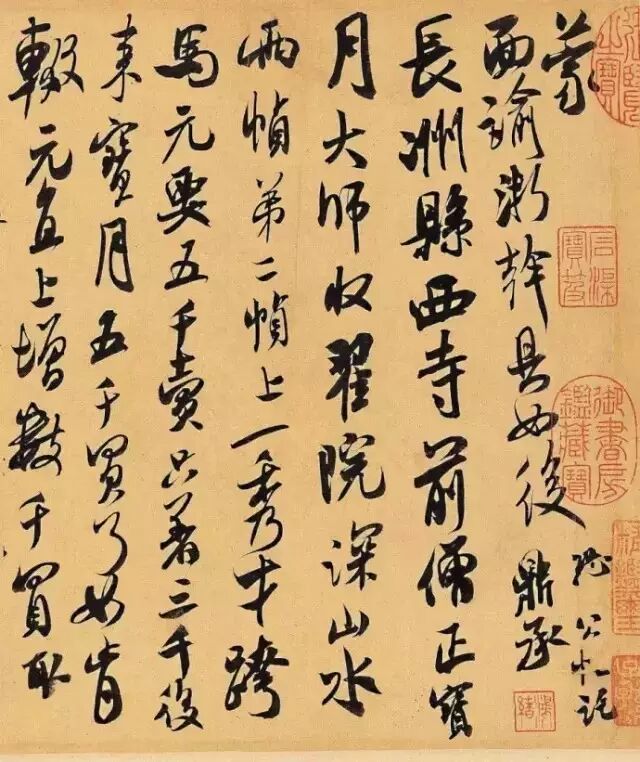 蒙
面諭浙幹具如後
長洲縣西寺前僧正寶
月大師收翟院深山水
兩幀第二幀上一秀才跨
馬元要五千賣只著三千後
來寶月五千買了如肯
輟元直上增數千買取
鼎承
石渠寶笈
御書房鑑藏寶